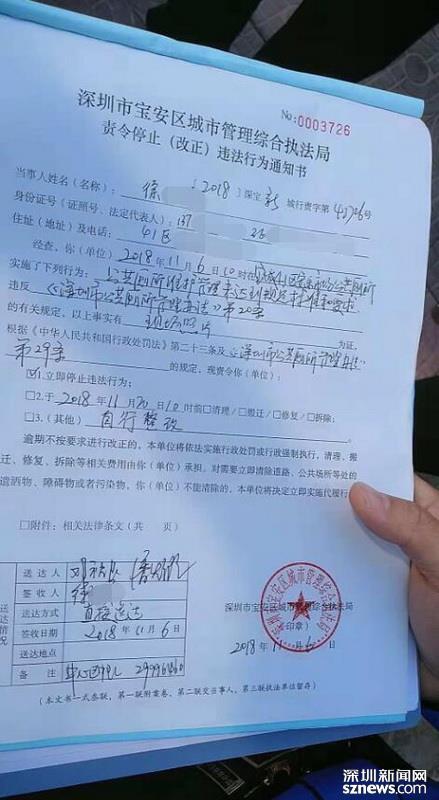 No:0003726
深圳市宝安区城市管理综合执法局
责令停止（改正）违法行为通知书
〔2018〕深宝 城行责字第 号
当事人姓名（名称）：徐
身份证号（证照号、法定代表人）：137
住址（地址）及电话：41区
经查，你（单位）2018年11月6日10时在
实施了下列行为：公共厕所维护管理未达到规定标准和要求
违反《深圳市公共厕所管理办法》第20条
的有关规定，以上事实有 现场照片 为证。
根据《中华人民共和国行政处罚法》第二十三条及《深圳市公共厕所管理办法》
第29条 的规定，现责令你（单位）：
☑1.立即停止违法行为；
□2.于2018年11月20日10时前□清理/□搬迁/□修复/□拆除；
□3.(其他) 自行整改
逾期不按要求进行改正的，本单位将依法实施行政处罚或行政强制执行，清理、搬
迁、修复、拆除等相关费用由你（单位）承担。对需要立即清除道路、公共场所等处的
遗洒物、障碍物或者污染物，你（单位）不能清除的，本单位将决定立即实施代履行
□附件：相关法律条文（共 页）
送达情况
送达人
签收人 徐
送达方式 直接送达
签收日期 2018年11月6日
送达地点
备注
深圳市宝安区城市管理综合执法局
（印章）
2018年11月6日
（本文书一式叁联，第一联附案卷、第二联交当事人、第三联执法单位留存）
深圳新闻网
sznews.com